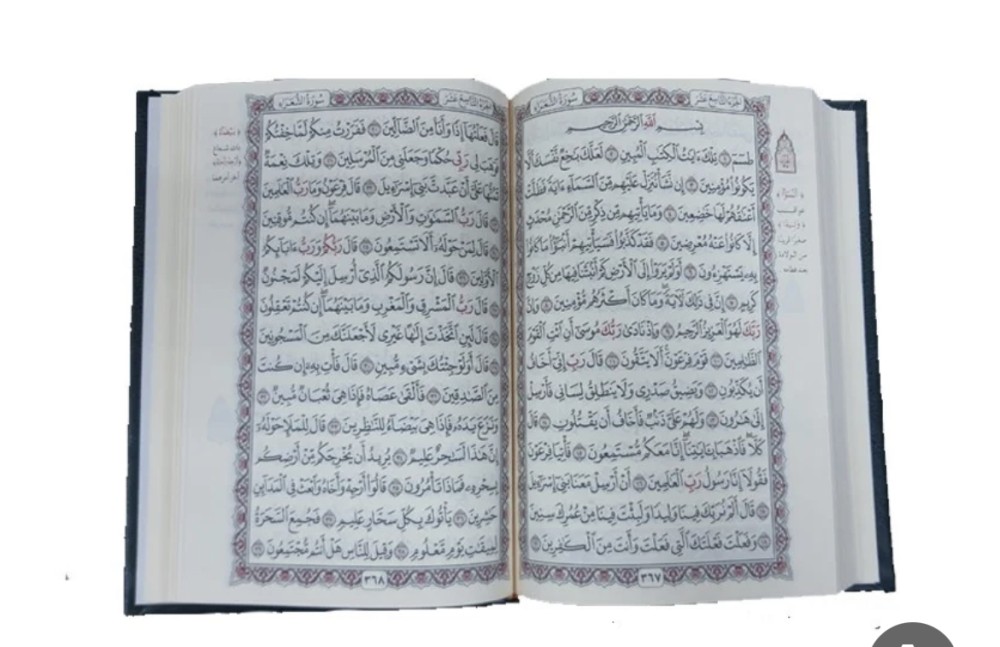 الجُزءُ التَّاسِعَ عَشَرَ
سُورَةُ الشُّعَرَاءِ
بِسْمِ اللَّهِ الرَّحْمَٰنِ الرَّحِيمِ
طسٓمٓ ١ تِلْكَ ءَايَٰتُ الْكِتَٰبِ الْمُبِينِ ٢ لَعَلَّكَ بَٰخِعٌ نَّفْسَكَ أَلَّا
يَكُونُوا مُؤْمِنِينَ ٣ إِن نَّشَأْ نُنَزِّلْ عَلَيْهِم مِّنَ السَّمَآءِ ءَايَةً فَظَلَّتْ
أَعْنَٰقُهُمْ لَهَا خَٰضِعِينَ ٤ وَمَا يَأْتِيهِم مِّن ذِكْرٍ مِّنَ الرَّحْمَٰنِ مُحْدَثٍ
إِلَّا كَانُوا عَنْهُ مُعْرِضِينَ ٥ فَقَدْ كَذَّبُوا فَسَيَأْتِيهِمْ أَنۢبَٰٓؤُا مَا كَانُوا
بِهِۦ يَسْتَهْزِءُونَ ٦ أَوَلَمْ يَرَوْا إِلَى الْأَرْضِ كَمْ أَنۢبَتْنَا فِيهَا مِن كُلِّ زَوْجٍ
كَرِيمٍ ٧ إِنَّ فِي ذَٰلِكَ لَءَايَةً وَمَا كَانَ أَكْثَرُهُم مُّؤْمِنِينَ ٨ وَإِنَّ
رَبَّكَ لَهُوَ الْعَزِيزُ الرَّحِيمُ ٩ وَإِذْ نَادَىٰ رَبُّكَ مُوسَىٰٓ أَنِ ائْتِ الْقَوْمَ
الظَّٰلِمِينَ ١٠ قَوْمَ فِرْعَوْنَ أَلَا يَتَّقُونَ ١١ قَالَ رَبِّ إِنِّيٓ أَخَافُ
أَن يُكَذِّبُونِ ١٢ وَيَضِيقُ صَدْرِي وَلَا يَنطَلِقُ لِسَانِي فَأَرْسِلْ
إِلَىٰ هَٰرُونَ ١٣ وَلَهُمْ عَلَيَّ ذَنۢبٌ فَأَخَافُ أَن يَقْتُلُونِ ١٤ قَالَ
كَلَّا فَاذْهَبَا بِـَٔايَٰتِنَآ إِنَّا مَعَكُم مُّسْتَمِعُونَ ١٥ فَأْتِيَا فِرْعَوْنَ
فَقُولَآ إِنَّا رَسُولُ رَبِّ الْعَٰلَمِينَ ١٦ أَنْ أَرْسِلْ مَعَنَا بَنِيٓ إِسْرَٰٓءِيلَ
١٧ قَالَ أَلَمْ نُرَبِّكَ فِينَا وَلِيدًا وَلَبِثْتَ فِينَا مِنْ عُمُرِكَ سِنِينَ
١٨ وَفَعَلْتَ فَعْلَتَكَ الَّتِي فَعَلْتَ وَأَنتَ مِنَ الْكَٰفِرِينَ ١٩
٣٦٧
الجُزءُ التَّاسِعَ عَشَرَ
سُورَةُ الشُّعَرَاءِ
قَالَ فَعَلْتُهَآ إِذًا وَأَنَا۠ مِنَ الضَّآلِّينَ ٢٠ فَفَرَرْتُ مِنكُمْ لَمَّا خِفْتُكُمْ
فَوَهَبَ لِي رَبِّي حُكْمًا وَجَعَلَنِي مِنَ الْمُرْسَلِينَ ٢١ وَتِلْكَ نِعْمَةٌ
تَمُنُّهَا عَلَيَّ أَنْ عَبَّدتَّ بَنِيٓ إِسْرَٰٓءِيلَ ٢٢ قَالَ فِرْعَوْنُ وَمَا رَبُّ الْعَٰلَمِينَ
٢٣ قَالَ رَبُّ السَّمَٰوَٰتِ وَالْأَرْضِ وَمَا بَيْنَهُمَآ إِن كُنتُم مُّوقِنِينَ
٢٤ قَالَ لِمَنْ حَوْلَهُۥٓ أَلَا تَسْتَمِعُونَ ٢٥ قَالَ رَبُّكُمْ وَرَبُّ ءَابَآئِكُمُ
الْأَوَّلِينَ ٢٦ قَالَ إِنَّ رَسُولَكُمُ الَّذِيٓ أُرْسِلَ إِلَيْكُمْ لَمَجْنُونٌ
٢٧ قَالَ رَبُّ الْمَشْرِقِ وَالْمَغْرِبِ وَمَا بَيْنَهُمَآ إِن كُنتُمْ تَعْقِلُونَ
٢٨ قَالَ لَئِنِ اتَّخَذْتَ إِلَٰهًا غَيْرِي لَأَجْعَلَنَّكَ مِنَ الْمَسْجُونِينَ
٢٩ قَالَ أَوَلَوْ جِئْتُكَ بِشَيْءٍ مُّبِينٍ ٣٠ قَالَ فَأْتِ بِهِۦٓ إِن كُنتَ
مِنَ الصَّٰدِقِينَ ٣١ فَأَلْقَىٰ عَصَاهُ فَإِذَا هِيَ ثُعْبَانٌ مُّبِينٌ ٣٢
وَنَزَعَ يَدَهُۥ فَإِذَا هِيَ بَيْضَآءُ لِلنَّٰظِرِينَ ٣٣ قَالَ لِلْمَلَإِ حَوْلَهُۥٓ
إِنَّ هَٰذَا لَسَٰحِرٌ عَلِيمٌ ٣٤ يُرِيدُ أَن يُخْرِجَكُم مِّنْ أَرْضِكُم
بِسِحْرِهِۦ فَمَاذَا تَأْمُرُونَ ٣٥ قَالُوٓا أَرْجِهْ وَأَخَاهُ وَابْعَثْ فِي الْمَدَآئِنِ
حَٰشِرِينَ ٣٦ يَأْتُوكَ بِكُلِّ سَحَّارٍ عَلِيمٍ ٣٧ فَجُمِعَ السَّحَرَةُ
لِمِيقَٰتِ يَوْمٍ مَّعْلُومٍ ٣٨ وَقِيلَ لِلنَّاسِ هَلْ أَنتُم مُّجْتَمِعُونَ ٣٩
٣٦٨